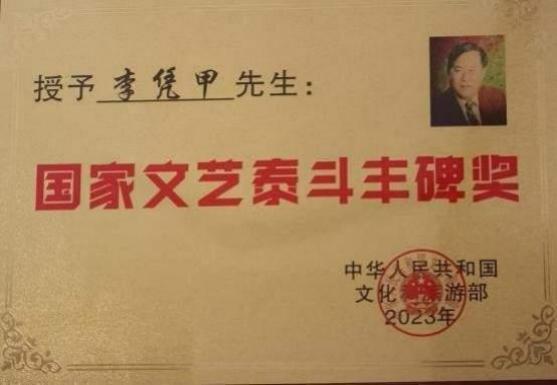 授予 李凭甲 先生：
国家文艺泰斗丰碑奖
中华人民共和国
文化和旅游部
2023年